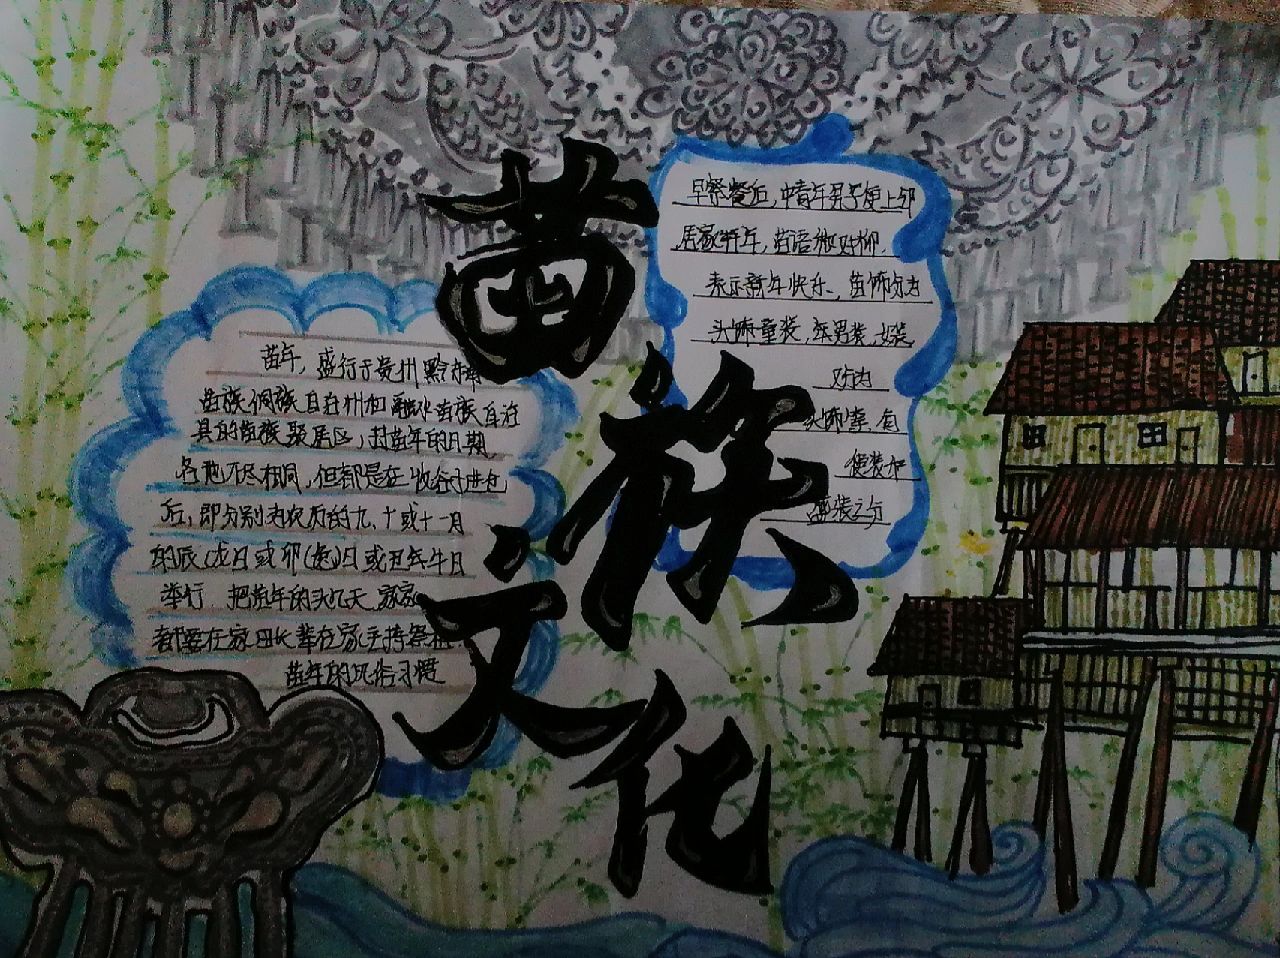 苗族文化
苗年，盛行于贵州黔东南
苗族侗族自治州和融水苗族自治
县的苗族聚居区，过苗年的日期，
各地不尽相同，但都是在收谷子进仓
后，即分别为农历的九、十或十一月
的辰(龙)日或卯(兔)日或丑牛日
举行 把苗年的头几天，家家
都要在家日长辈在家主持祭祖.
苗年的风俗习惯
早餐后，中青年男子便上邻
居家拜年，苗语
表示新年快乐、苗饰分为
头饰童装，年男装，女装
又分为
头饰 包
便装和
盛装之分